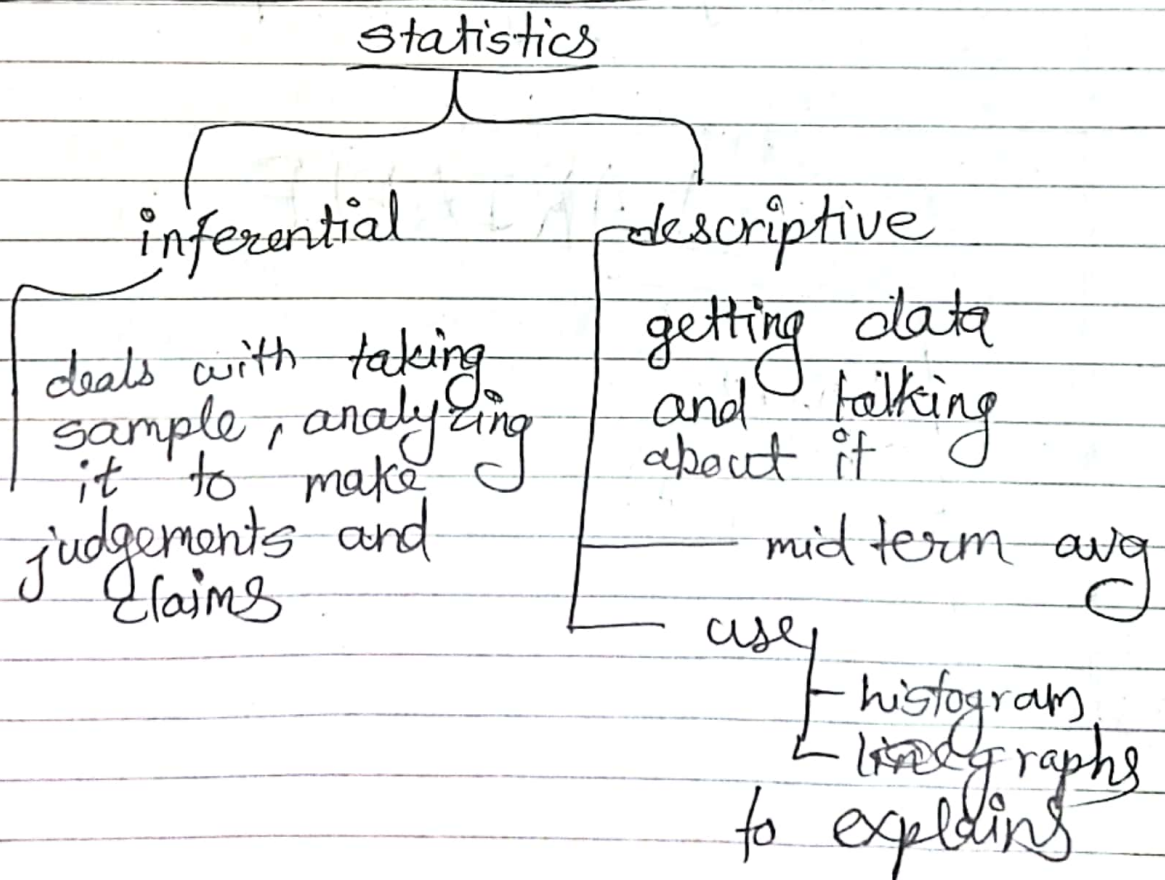 statistics
inferential
deals with taking
sample, analyzing
it to make
judgements and
claims
descriptive
getting data
and talking
about it
mid term avg
use
histogram
line graphs
to explains